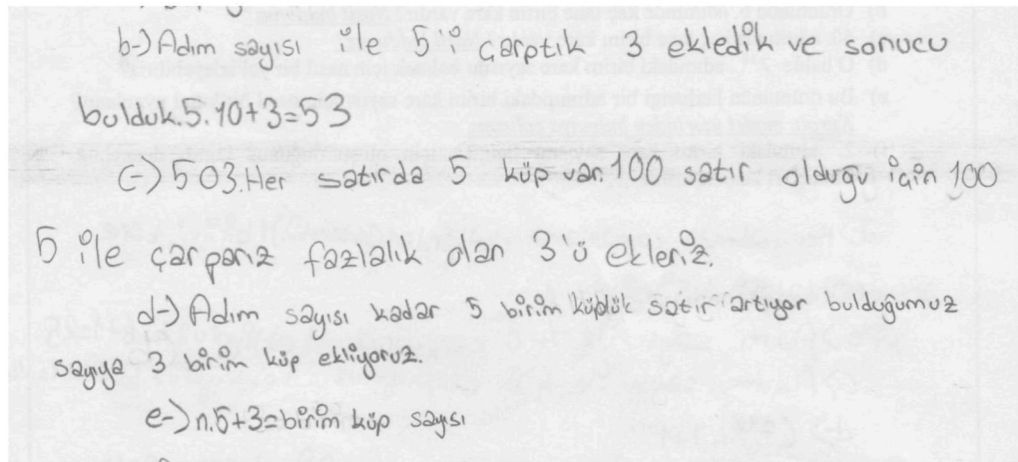 b-) Adım sayısı ile 5'i çarptık 3 ekledik ve sonucu
bulduk.5.10+3=53
c-) 503.Her satırda 5 küp var 100 satır olduğu için 100
5 ile çarparız fazlalık olan 3'ü ekleriz.
d-) Adım sayısı kadar 5 birim küplük satır artıyor bulduğumuz
sayıya 3 birim küp ekliyoruz.
e-) n.5+3=birim küp sayısı